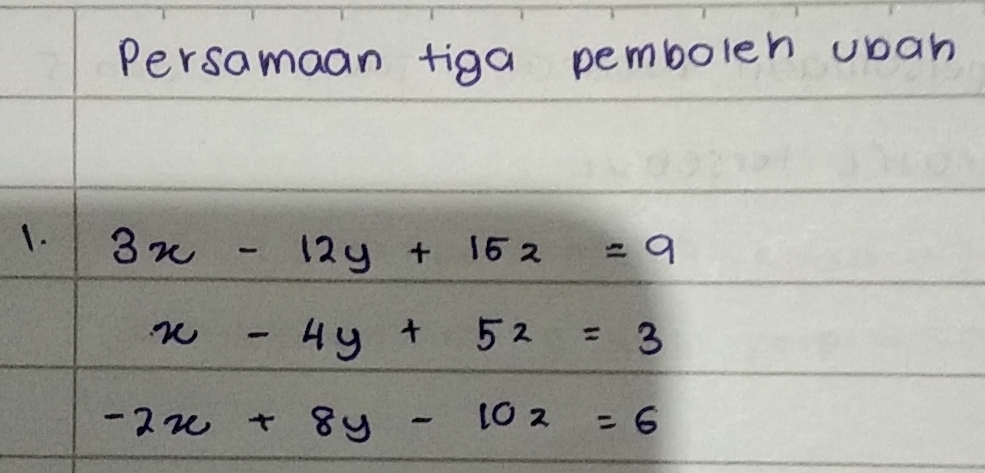 Persamaan tiga pemboleh ubah
1. 3x - 12y + 15z = 9
x - 4y + 5z = 3
-2x + 8y - 10z = 6